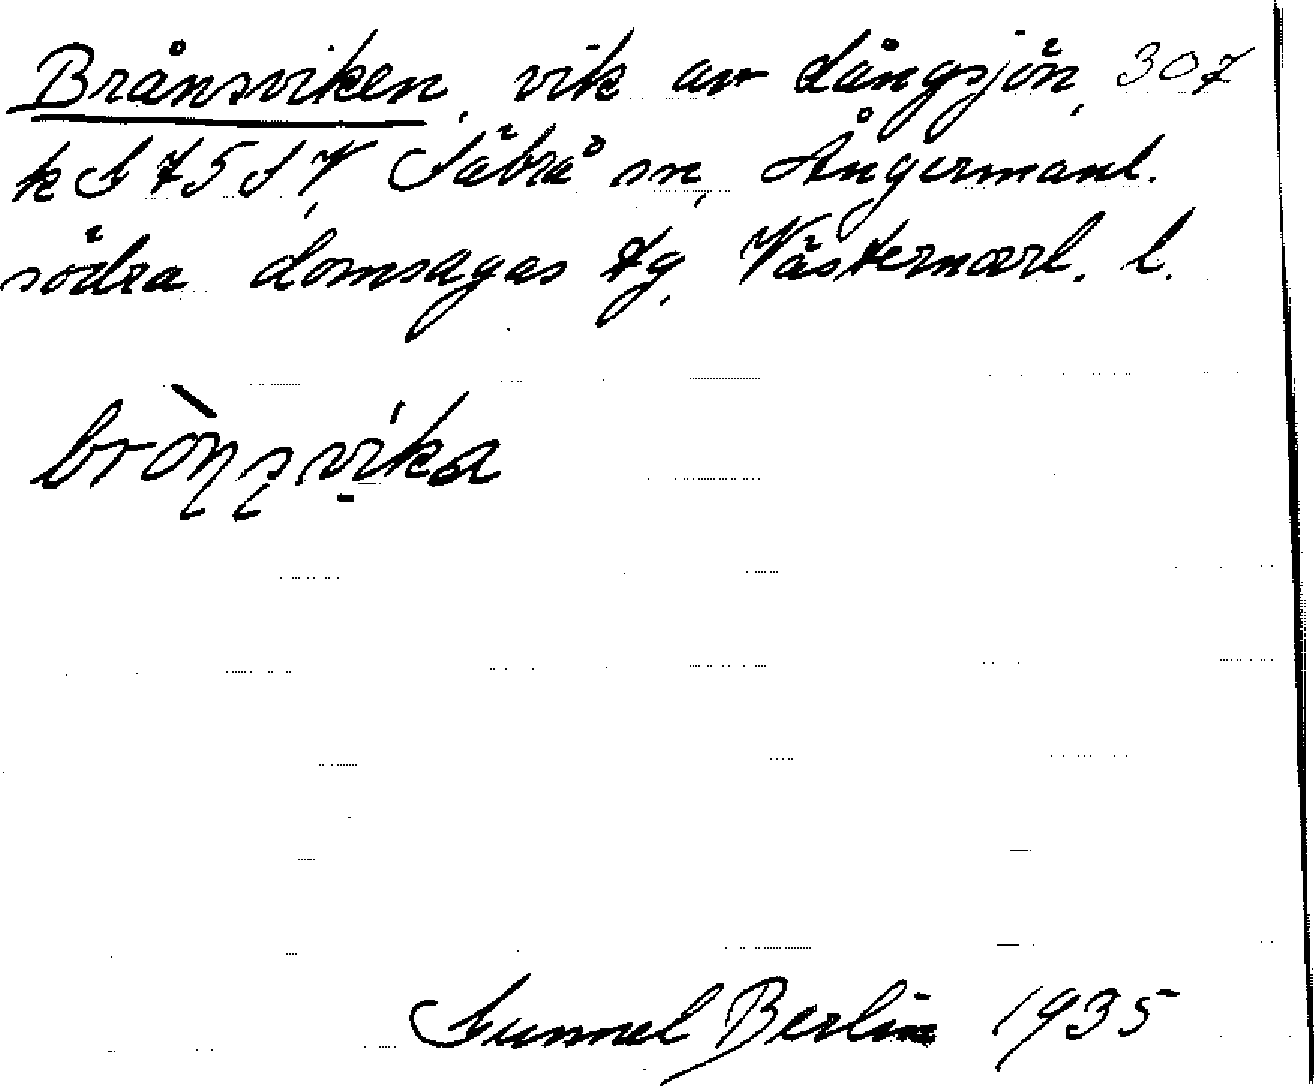 Brånsviken, vik av Långsjön, 307
k S 75 S V, Säbrå sn, Ångermanl.
södra domsagas tg, Västernorrl. l.
bròn̥s̥vi̱ka
Gunnel Berlin 1935